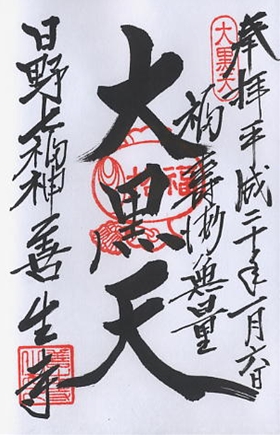 奉拝 平成二十年一月六日
大黒天
福寿海無量
大黒天
日野七福神 善生寺